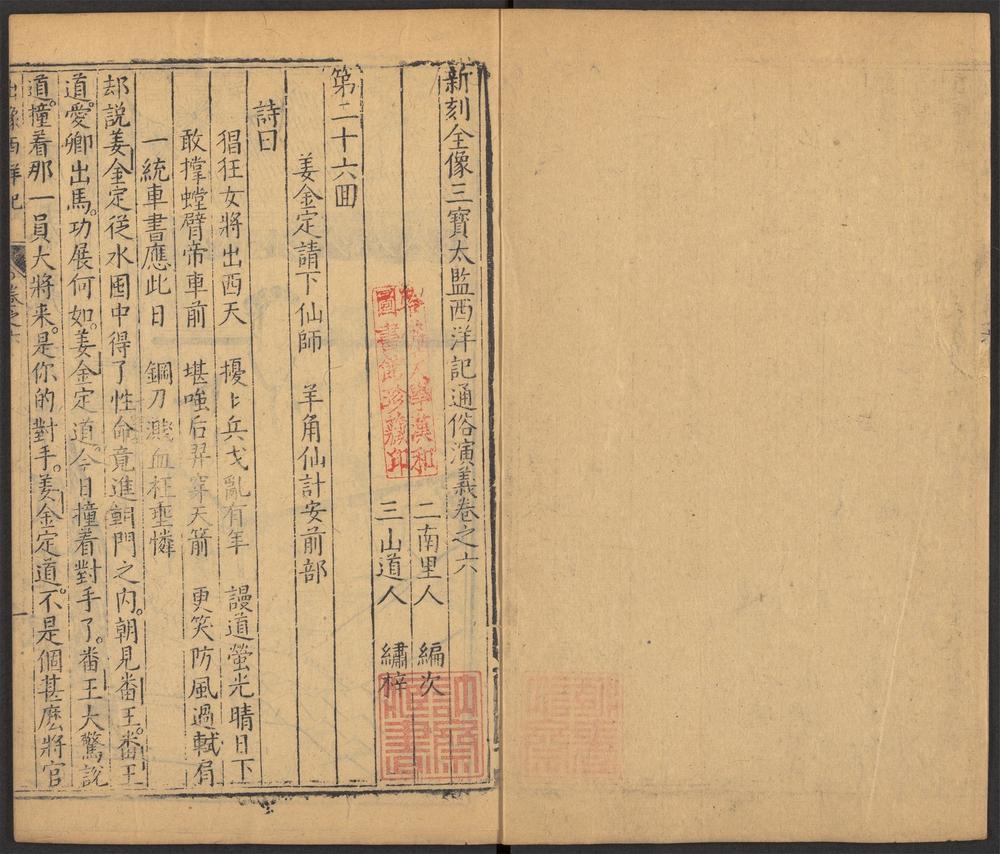 新刻全像三寶太監西洋記通俗演義卷之六
二南里人　編次
三山道人　繡梓
第二十六囬
姜金定請下仙師　羊角仙計安前部
詩曰
猖狂女將出西天　擾〻兵戈亂有年　謾道螢光晴日下
敢撑螳臂帝車前　堪嗤后羿穿天箭　更笑防風過軾肩
一統車書應此日　鋼刀濺血枉垂憐
却説姜金定從水囤中得了性命竟進朝門之内。朝見番王。番王
道。愛卿出馬。功展何如。姜金定道。今日撞着對手了。番王大驚說
道。撞着那一員大將来。是你的對手。姜金定道。不是個甚麽將官
出像西洋記
卷之六
一
哈佛大學漢和
圖書館珍藏印